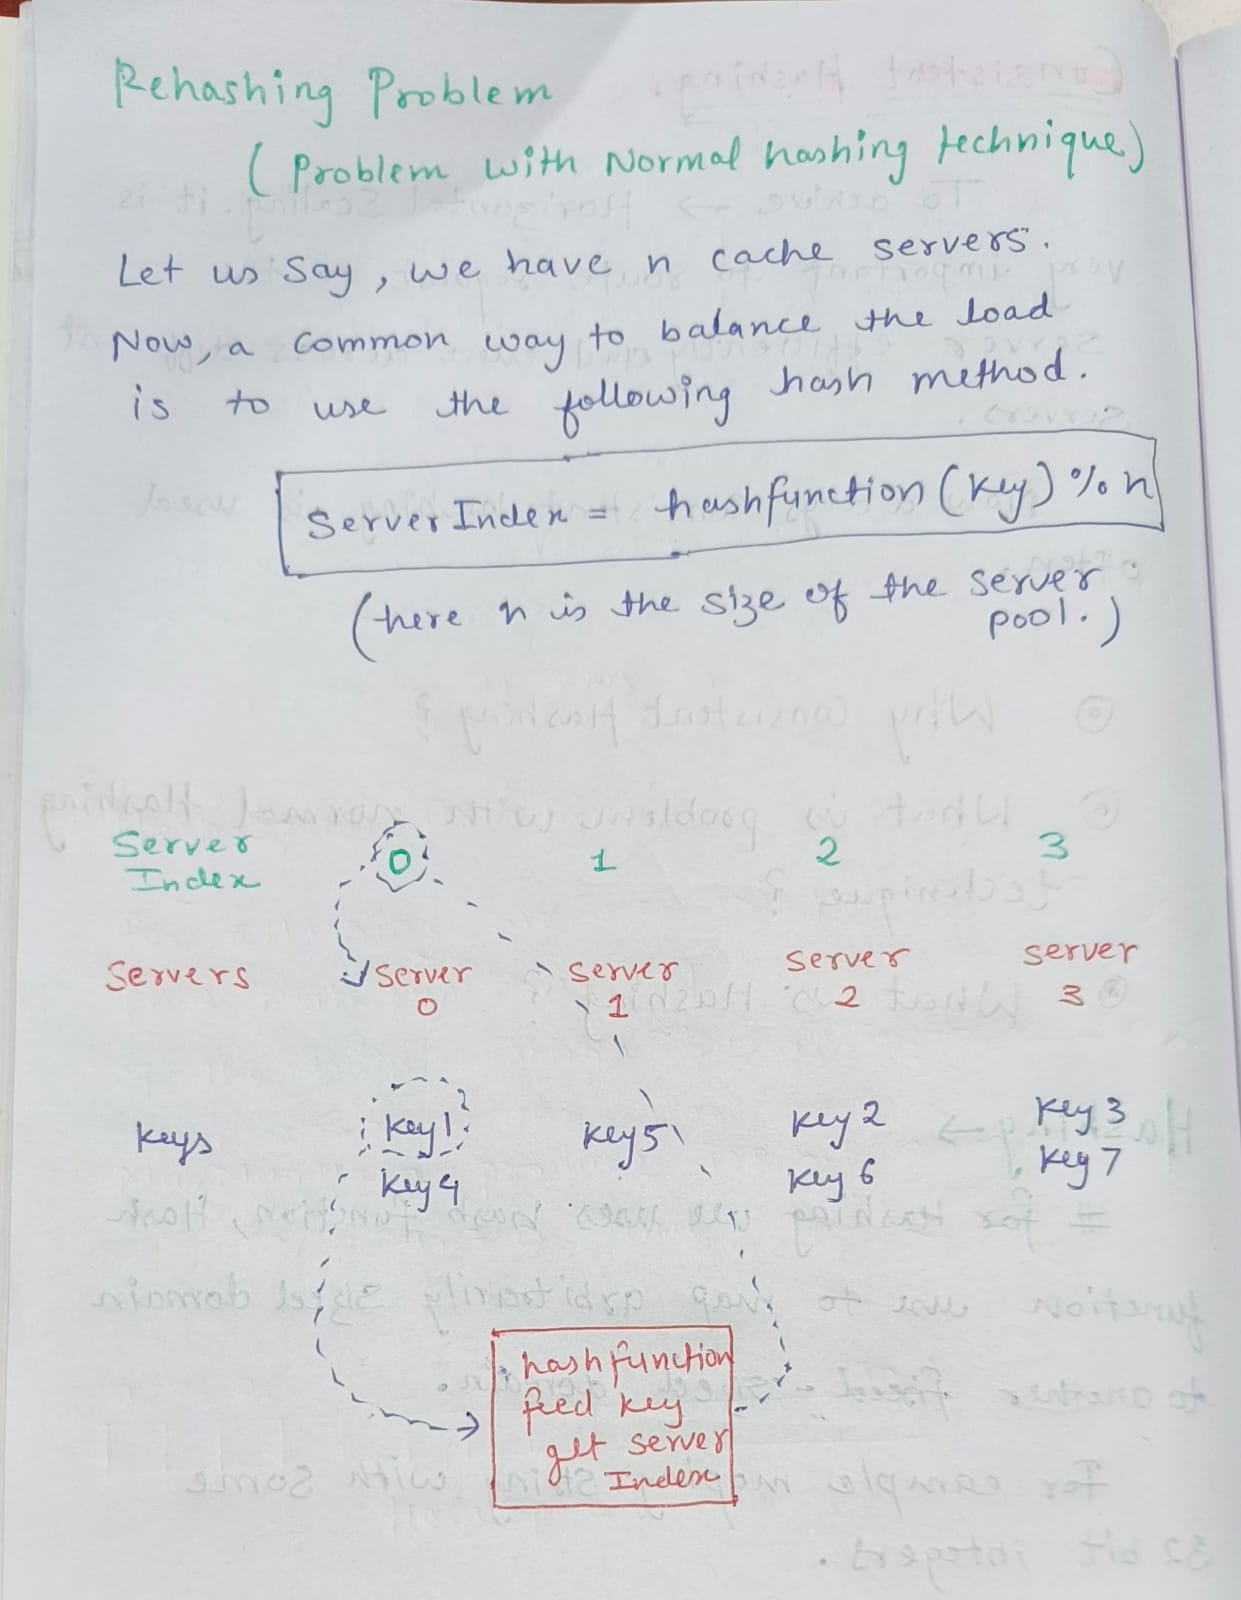 Rehashing Problem
( Problem with Normal hashing technique)
Let us say, we have n cache servers.
Now, a common way to balance the load
is to use the following hash method.
Server Index = hashfunction (key) % n
(here n is the size of the server
pool.)
Server Index 0 1 2 3
Servers server 0 server 1 server 2 server 3
keys key1 key5 key2 key3
key4 key6 key7
hashfunction
feed key
get server
Index